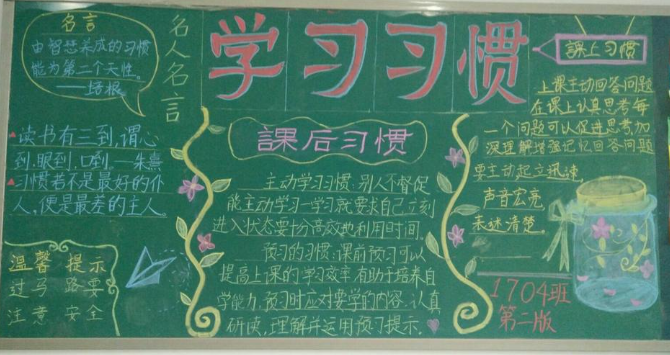 名言
由智慧养成的习惯
能为第二个天性。
——培根
名人名言
读书有三到,谓心
到,眼到,口到。—朱熹
习惯若不是最好的仆
人,便是最差的主人。
温馨 提示
过马 路要
注意 安全
学习习惯
課后习惯
主动学习习惯:别人不督促
能主动学习一学习就要求自己立刻
进入状态要十分高效地利用时间。
预习的习惯:课前预习可以
提高上课的学习效率,有助于培养自
学能力。预习时应对要学的内容,认真
研读,理解并运用预习提示。
課上习惯
上课主动回答问题
在课上认真思考每
一个问题可以促进思考加
深理解增强记忆回答问题
要主动起立迅速
声音宏亮
表述清楚。
1704班
第二版